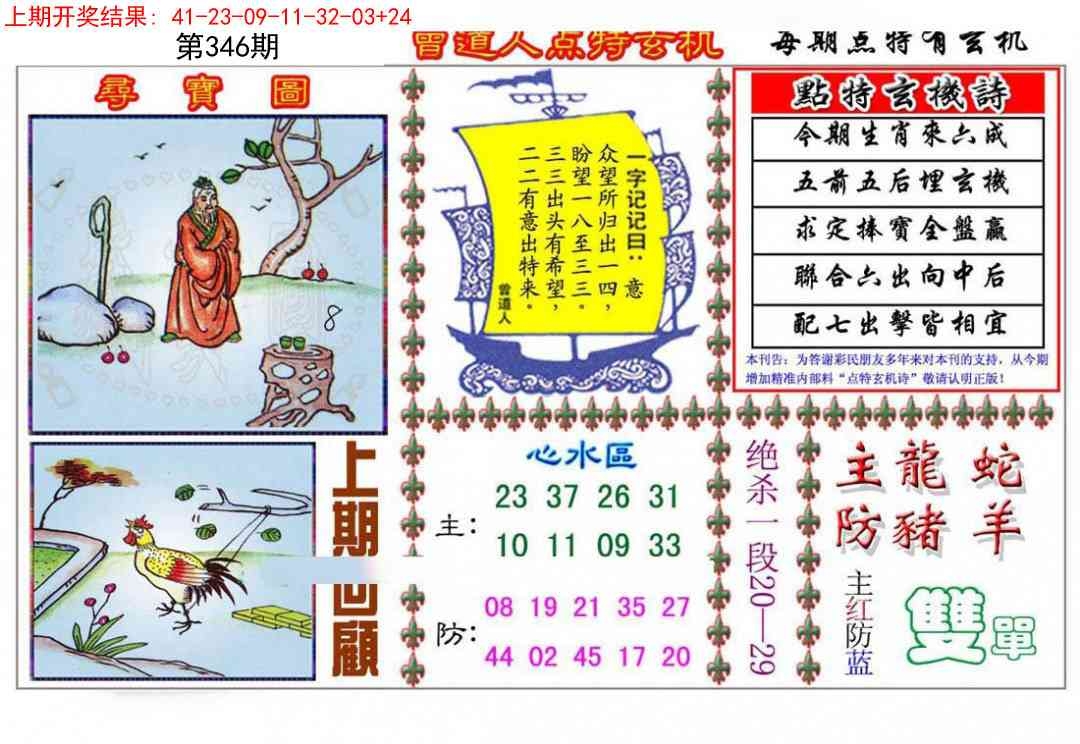 上期开奖结果: 41-23-09-11-32-03+24
第346期
曾道人点特玄机
每期点特有玄机
尋寶圖
8
一字记记曰：意
众望所归出一四，
盼望一八至三三。
三三出头有希望，
二二有意出特来。
曾道人
點特玄機詩
今期生肖來六成
五前五后埋玄機
求定捧寶全盤赢
聯合六出向中后
配七出擊皆相宜
本刊告：为答谢彩民朋友多年来对本刊的支持，从今期
增加精准内部料“点特玄机诗”敬请认明正版！
上期回顧
心水區
主:
23 37 26 31
10 11 09 33
防:
08 19 21 35 27
44 02 45 17 20
绝杀一段20—29
主龍蛇
防豬羊
主红防蓝
雙單